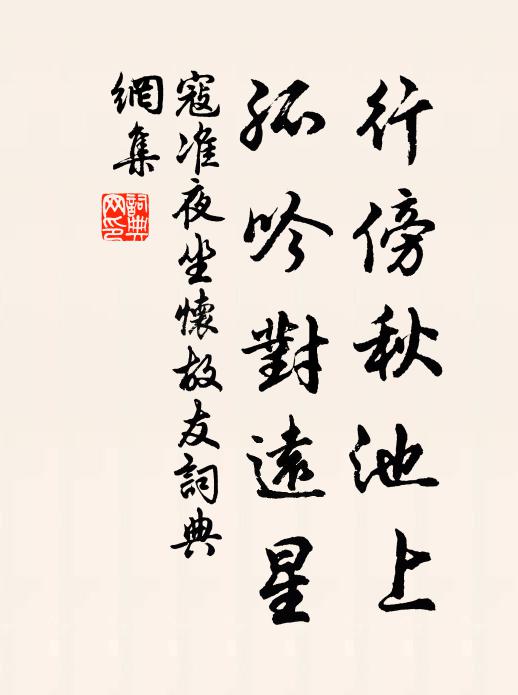 行傍秋池上
孤吟對遠星
寇准夜坐懷故友詞典
網集
詞典
网印